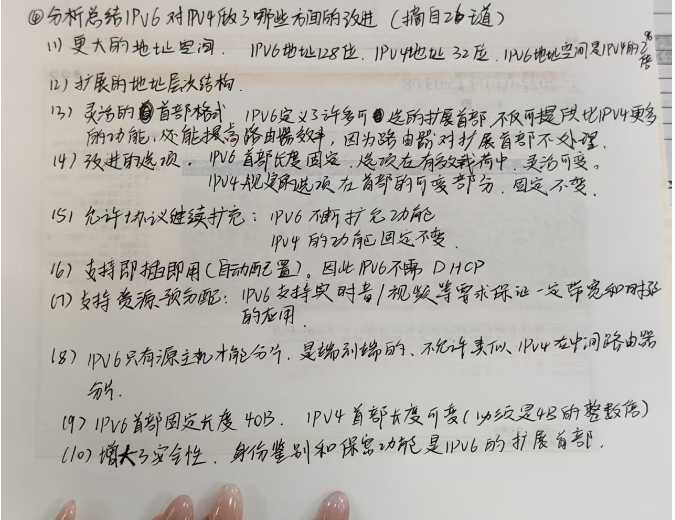 ④分析总结IPV6对IPV4做了哪些方面的改进（摘自王道）
(1) 更大的地址空间. IPV6地址128位, IPV4地址32位, IPV6地址空间是IPV4的2^96倍
(2) 扩展的地址层次结构.
(3) 灵活的首部格式 IPV6定义了许多可选的扩展首部,不仅可提供比IPV4更多
的功能,还能提高路由器效率,因为路由器对扩展首部不处理.
(4) 改进的选项. IPV6首部长度固定,选项在有效载荷中,灵活可变。
IPV4规定的选项在首部的可变部分,固定不变.
(5) 允许协议继续扩充: IPV6不断扩充功能
IPV4的功能固定不变.
(6) 支持即插即用(自动配置)。因此IPV6不需DHCP
(7) 支持资源预分配: IPV6支持实时音/视频等要求保证一定带宽和时延
的应用.
(8) IPV6只有源主机才能分片,是端到端的、不允许类似IPV4在中间路由器
分片.
(9) IPV6首部固定长度40B. IPV4首部长度可变(必须是4B的整数倍)
(10) 增大了安全性. 身份鉴别和保密功能是IPV6的扩展首部.